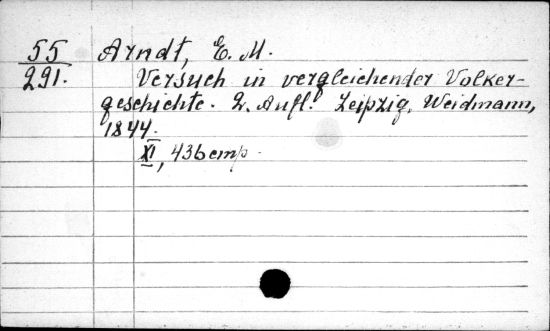 55 Arndt, E. M.
291. Versuch in vergleichender Volker-
geschichte. 2. Aufl. Leipzig, Weidmann,
1844.
XI, 436 стр.